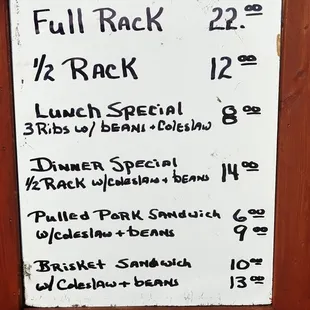 Full Rack 22.00
1/2 Rack 12 00
Lunch Special 8 00
3 Ribs w/ beans + Coleslaw
Dinner Special 14 00
1/2 Rack w/coleslaw + beans
Pulled Pork Sandwich 6 00
w/coleslaw + beans 9 00
Brisket Sandwich 10 00
w/ Coleslaw + beans 13 00